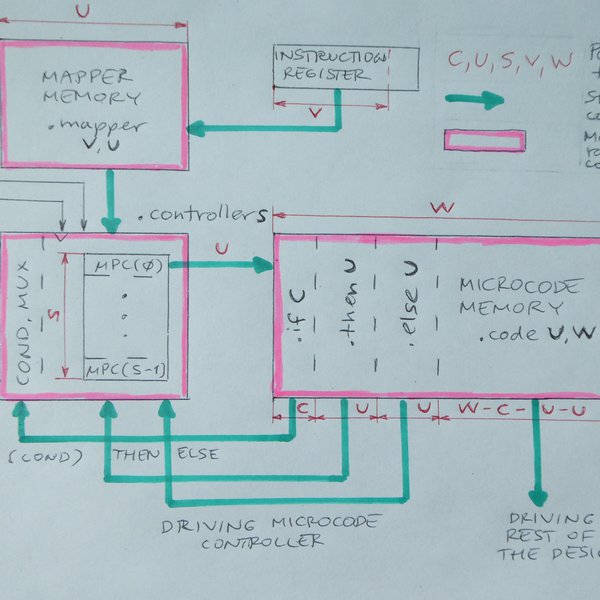 U
MAPPER
MEMORY
.mapper
V, U
INSTRUCTION
REGISTER
V
C, U, S, V, W
.controllers
W
U
COND, MUX
S
MPC(0)
MPC(S-1)
.if C
.then U
.else U
MICROCODE
MEMORY
.code U, W
C
U
U
W-C-U-U
(COND)
THEN
ELSE
DRIVING MICROCODE
CONTROLLER
DRIVING
REST OF
THE DESIG